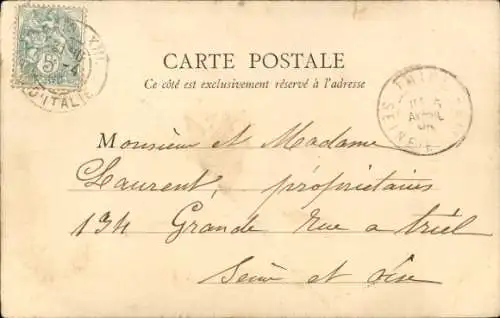 CARTE POSTALE
Ce côté est exclusivement réservé à l'adresse
5
D'ITALIE
AVRIL
Monsieur et Madame
Laurent, propriétaires
134 Grande Rue a triel
Seine et Oise